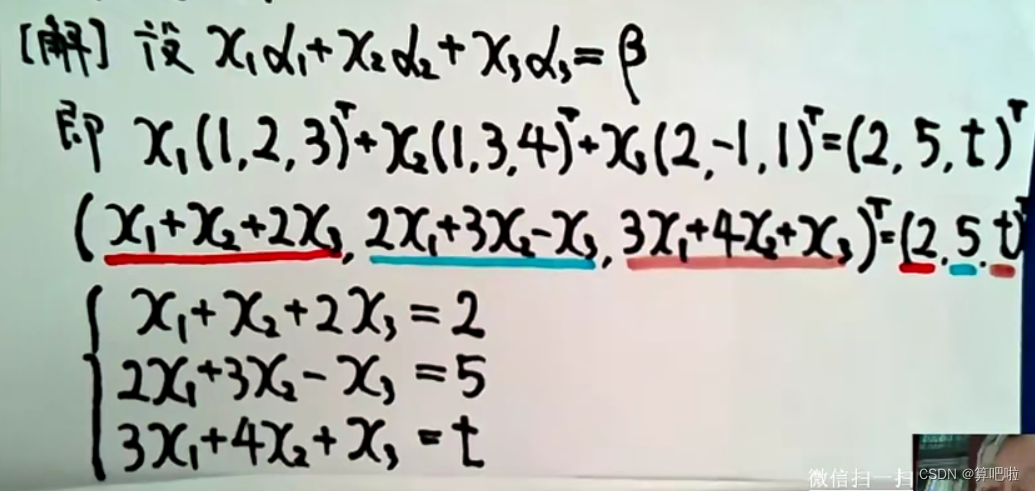 [解] 设 x₁α₁+x₂α₂+x₃α₃=β
即 x₁(1,2,3)ᵀ+x₂(1,3,4)ᵀ+x₃(2,-1,1)ᵀ=(2,5,t)ᵀ
(x₁+x₂+2x₃, 2x₁+3x₂-x₃, 3x₁+4x₂+x₃)ᵀ=(2,5,t)ᵀ
x₁+x₂+2x₃=2
2x₁+3x₂-x₃=5
3x₁+4x₂+x₃=t
微信扫一扫
CSDN @算吧啦